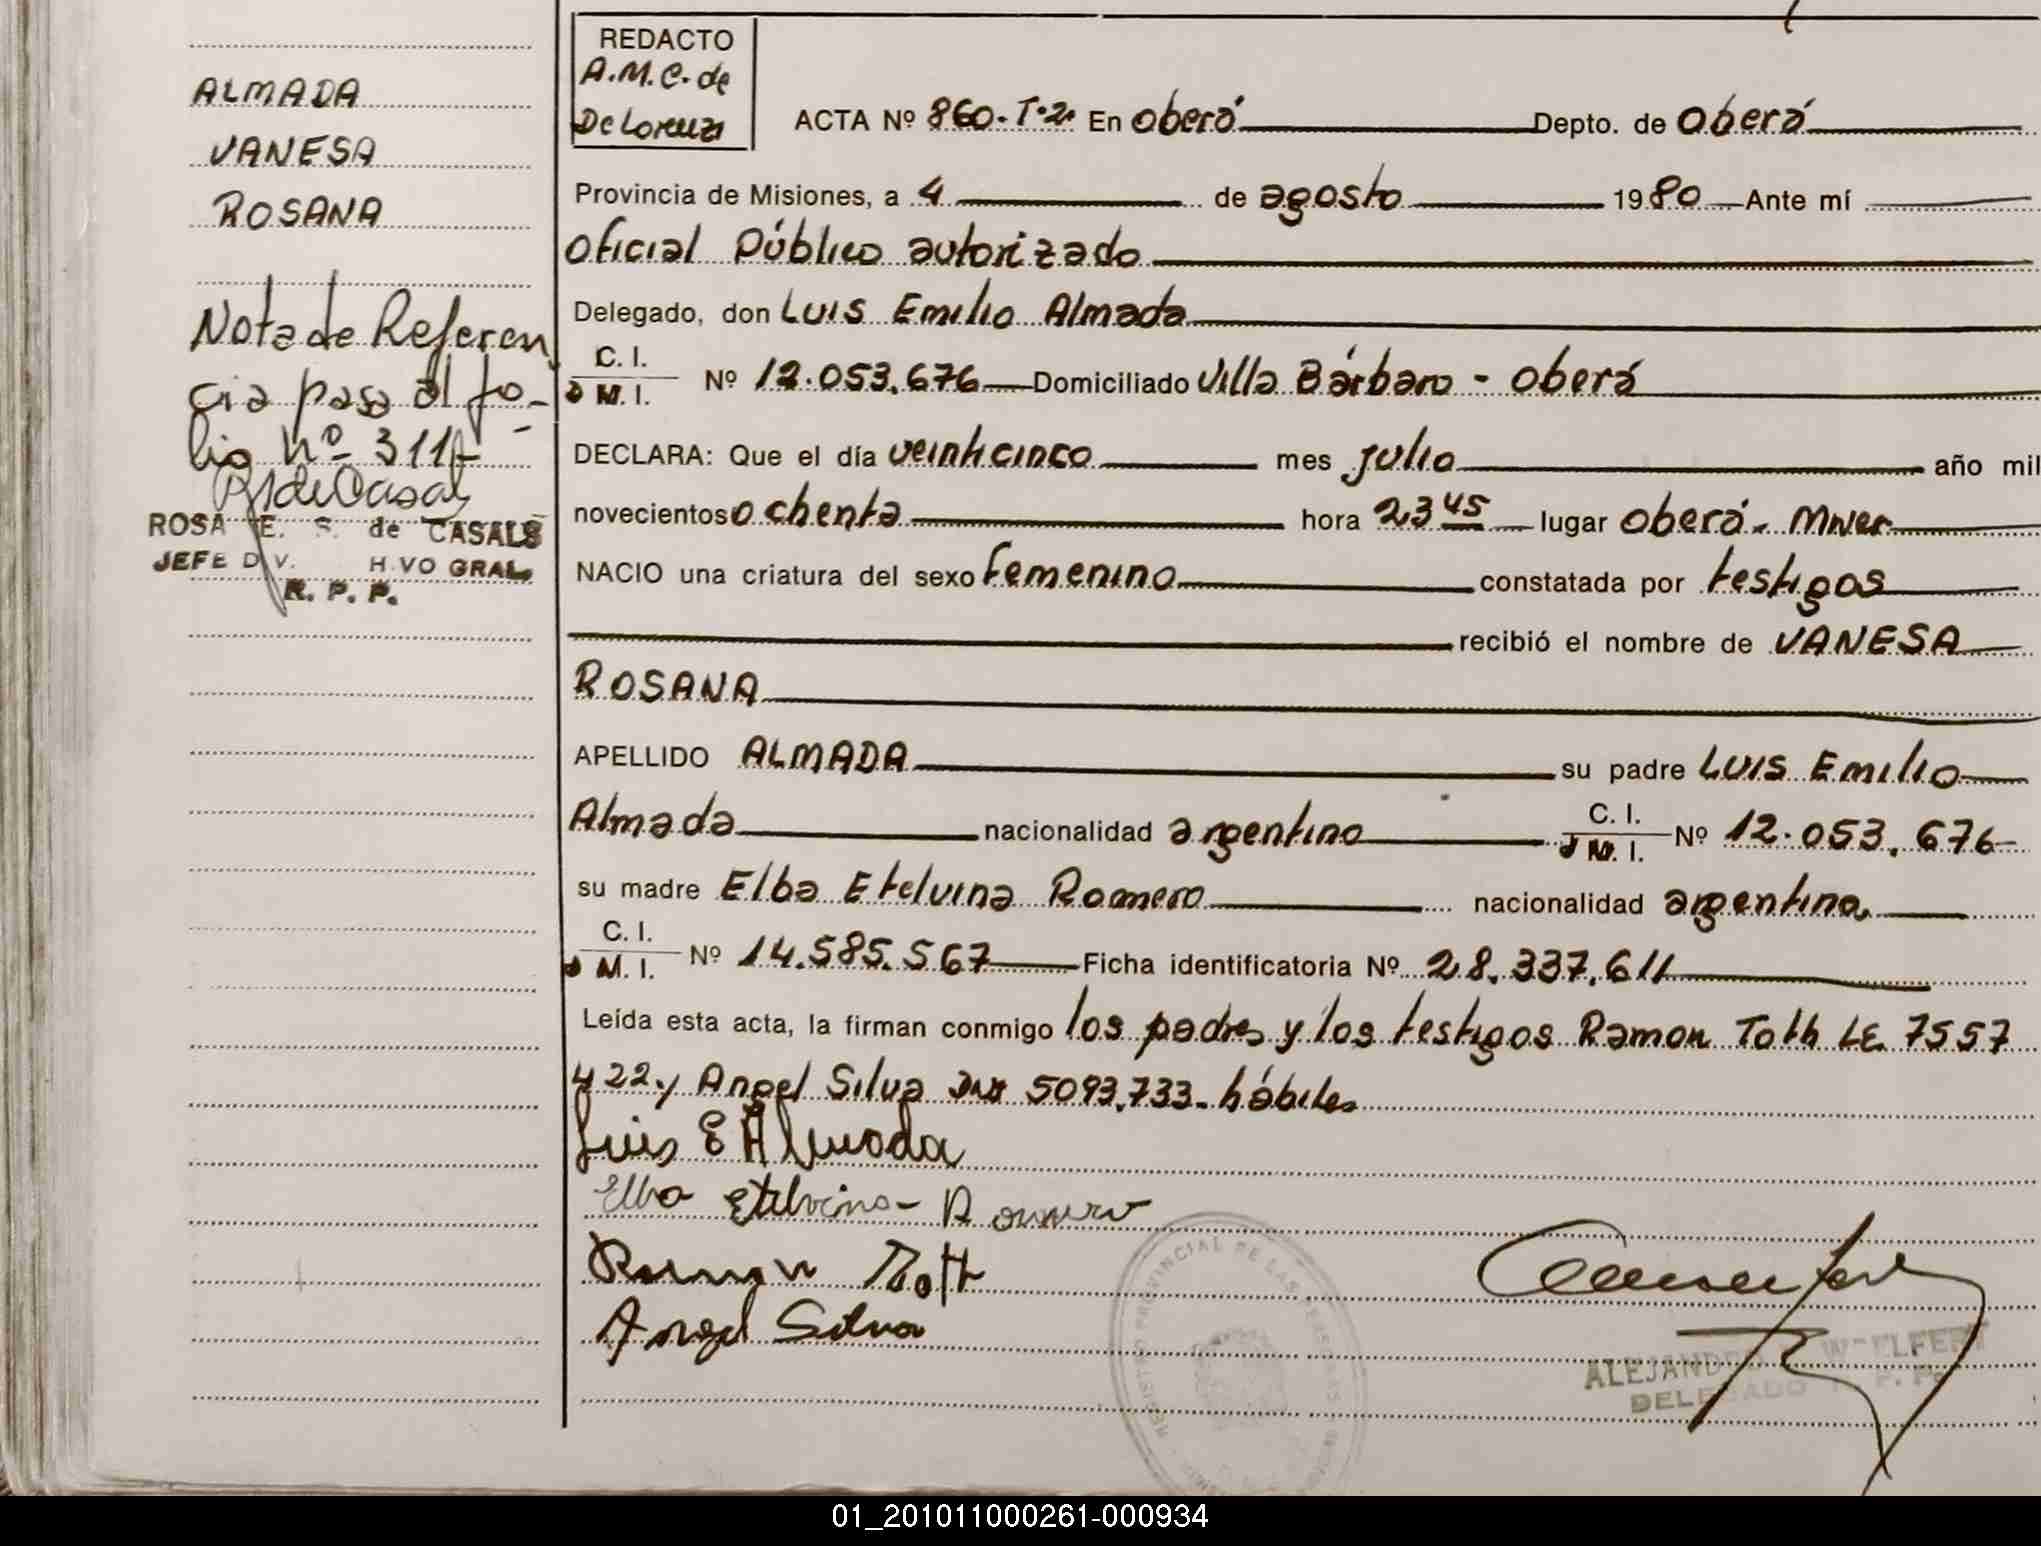 ALMADA
VANESA
ROSANA
Nota de Referen
cia pasa al fo-
lio Nº 311
ROSA E. S. de CASALS
JEFE DIV. H VO GRAL.
R. P. P.
REDACTO
A.M.C. de
De Lorenzi
ACTA Nº 860-T-2 En Oberá Depto. de Oberá
Provincia de Misiones, a 4 de agosto 1980 Ante mí
Oficial Público autorizado
Delegado, don Luis Emilio Almada
C. I.
M. I. Nº 12.053.676 Domiciliado Villa Bárbaro - Oberá
DECLARA: Que el día veinticinco mes julio año mil
novecientos ochenta hora 23 45 lugar Oberá.
NACIO una criatura del sexo femenino constatada por testigos
recibió el nombre de VANESA
ROSANA
APELLIDO ALMADA su padre Luis Emilio
Almada nacionalidad argentino C. I. M. I. Nº 12.053.676
su madre Elba Etelvina Romero nacionalidad argentina
C. I.
M. I. Nº 14.585.567 Ficha identificatoria Nº 28.337.611
Leída esta acta, la firman conmigo los padres y los testigos Ramon Toth LE 7557
422 y Angel Silva DNI 5093.733. hábiles
Luis E Almada
Elba Etelvina Romero
Ramon Toth
Angel Silva
REGISTRO PROVINCIAL DE LAS PERSONAS
ALEJANDRO WOELFERT
DELEGADO R. P. P.
01_201011000261-000934